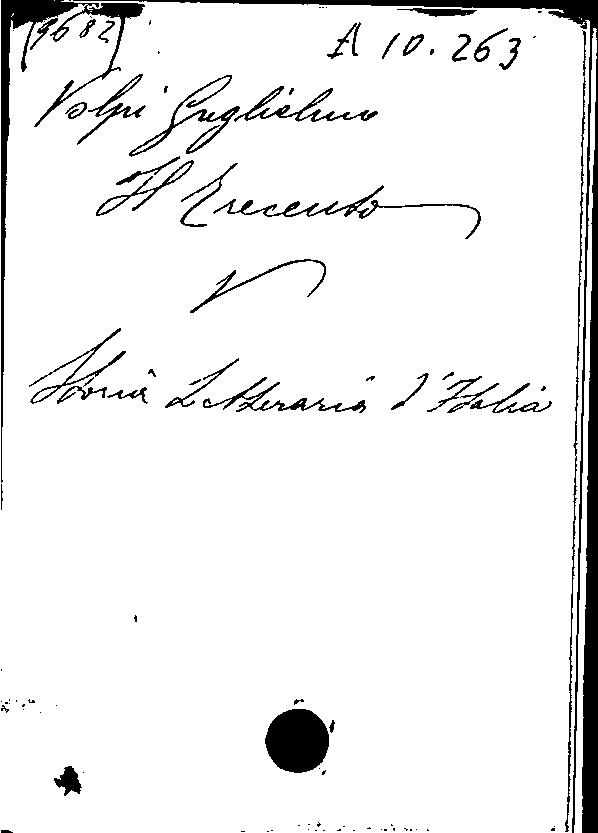 (9682)
A 10. 263
Volpi Guglielmo
Il Trecento
V
Storia Letteraria d'Italia